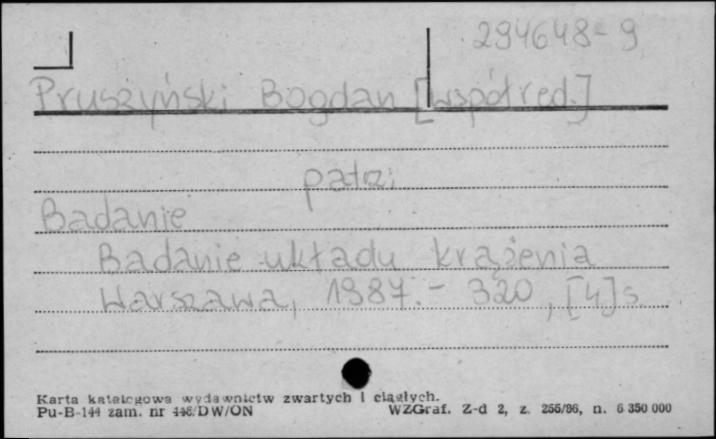 294648-9
Pruszyński Bogdan [współred.]
patrz:
Badanie
Badanie układu krążenia
Warszawa, 1987.- 320, [4] s.
Karta katalogowa wydawnictw zwartych i ciągłych.
Pu-B-144 zam. nr 446/DW/ON
WZGraf. Z-d 2, z. 256/86, n. 6 350 000